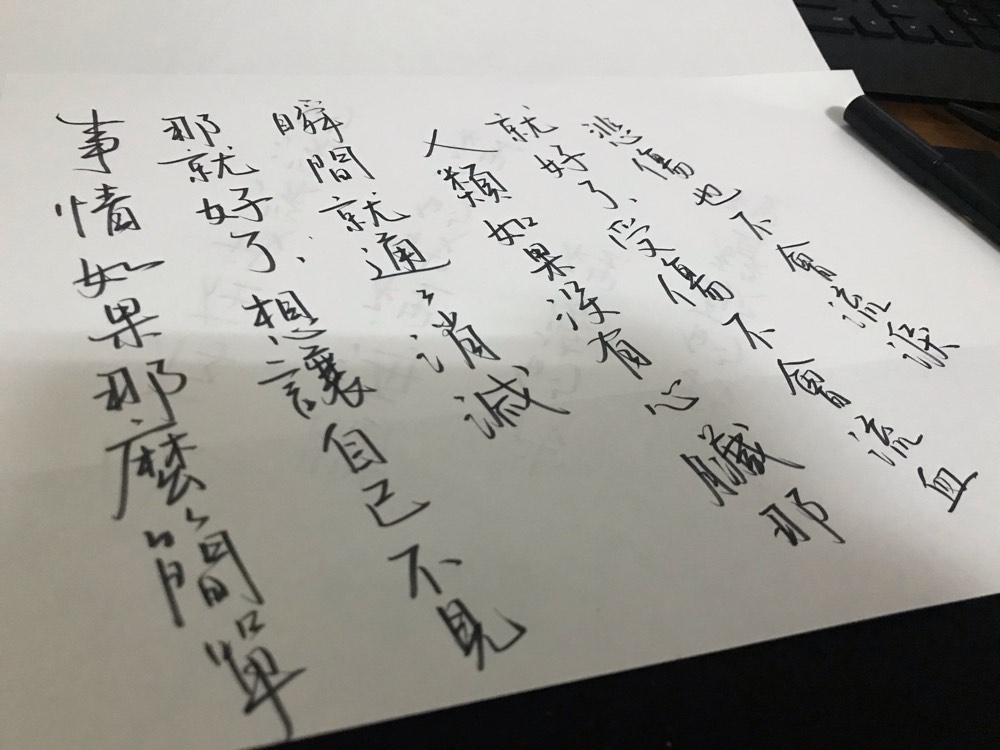 事情如果那麼簡單
那就好了、想讓自己不見
瞬間就通〻消滅
人類如果沒有心臟那
就好了、受傷不會流血
悲傷也不會流淚